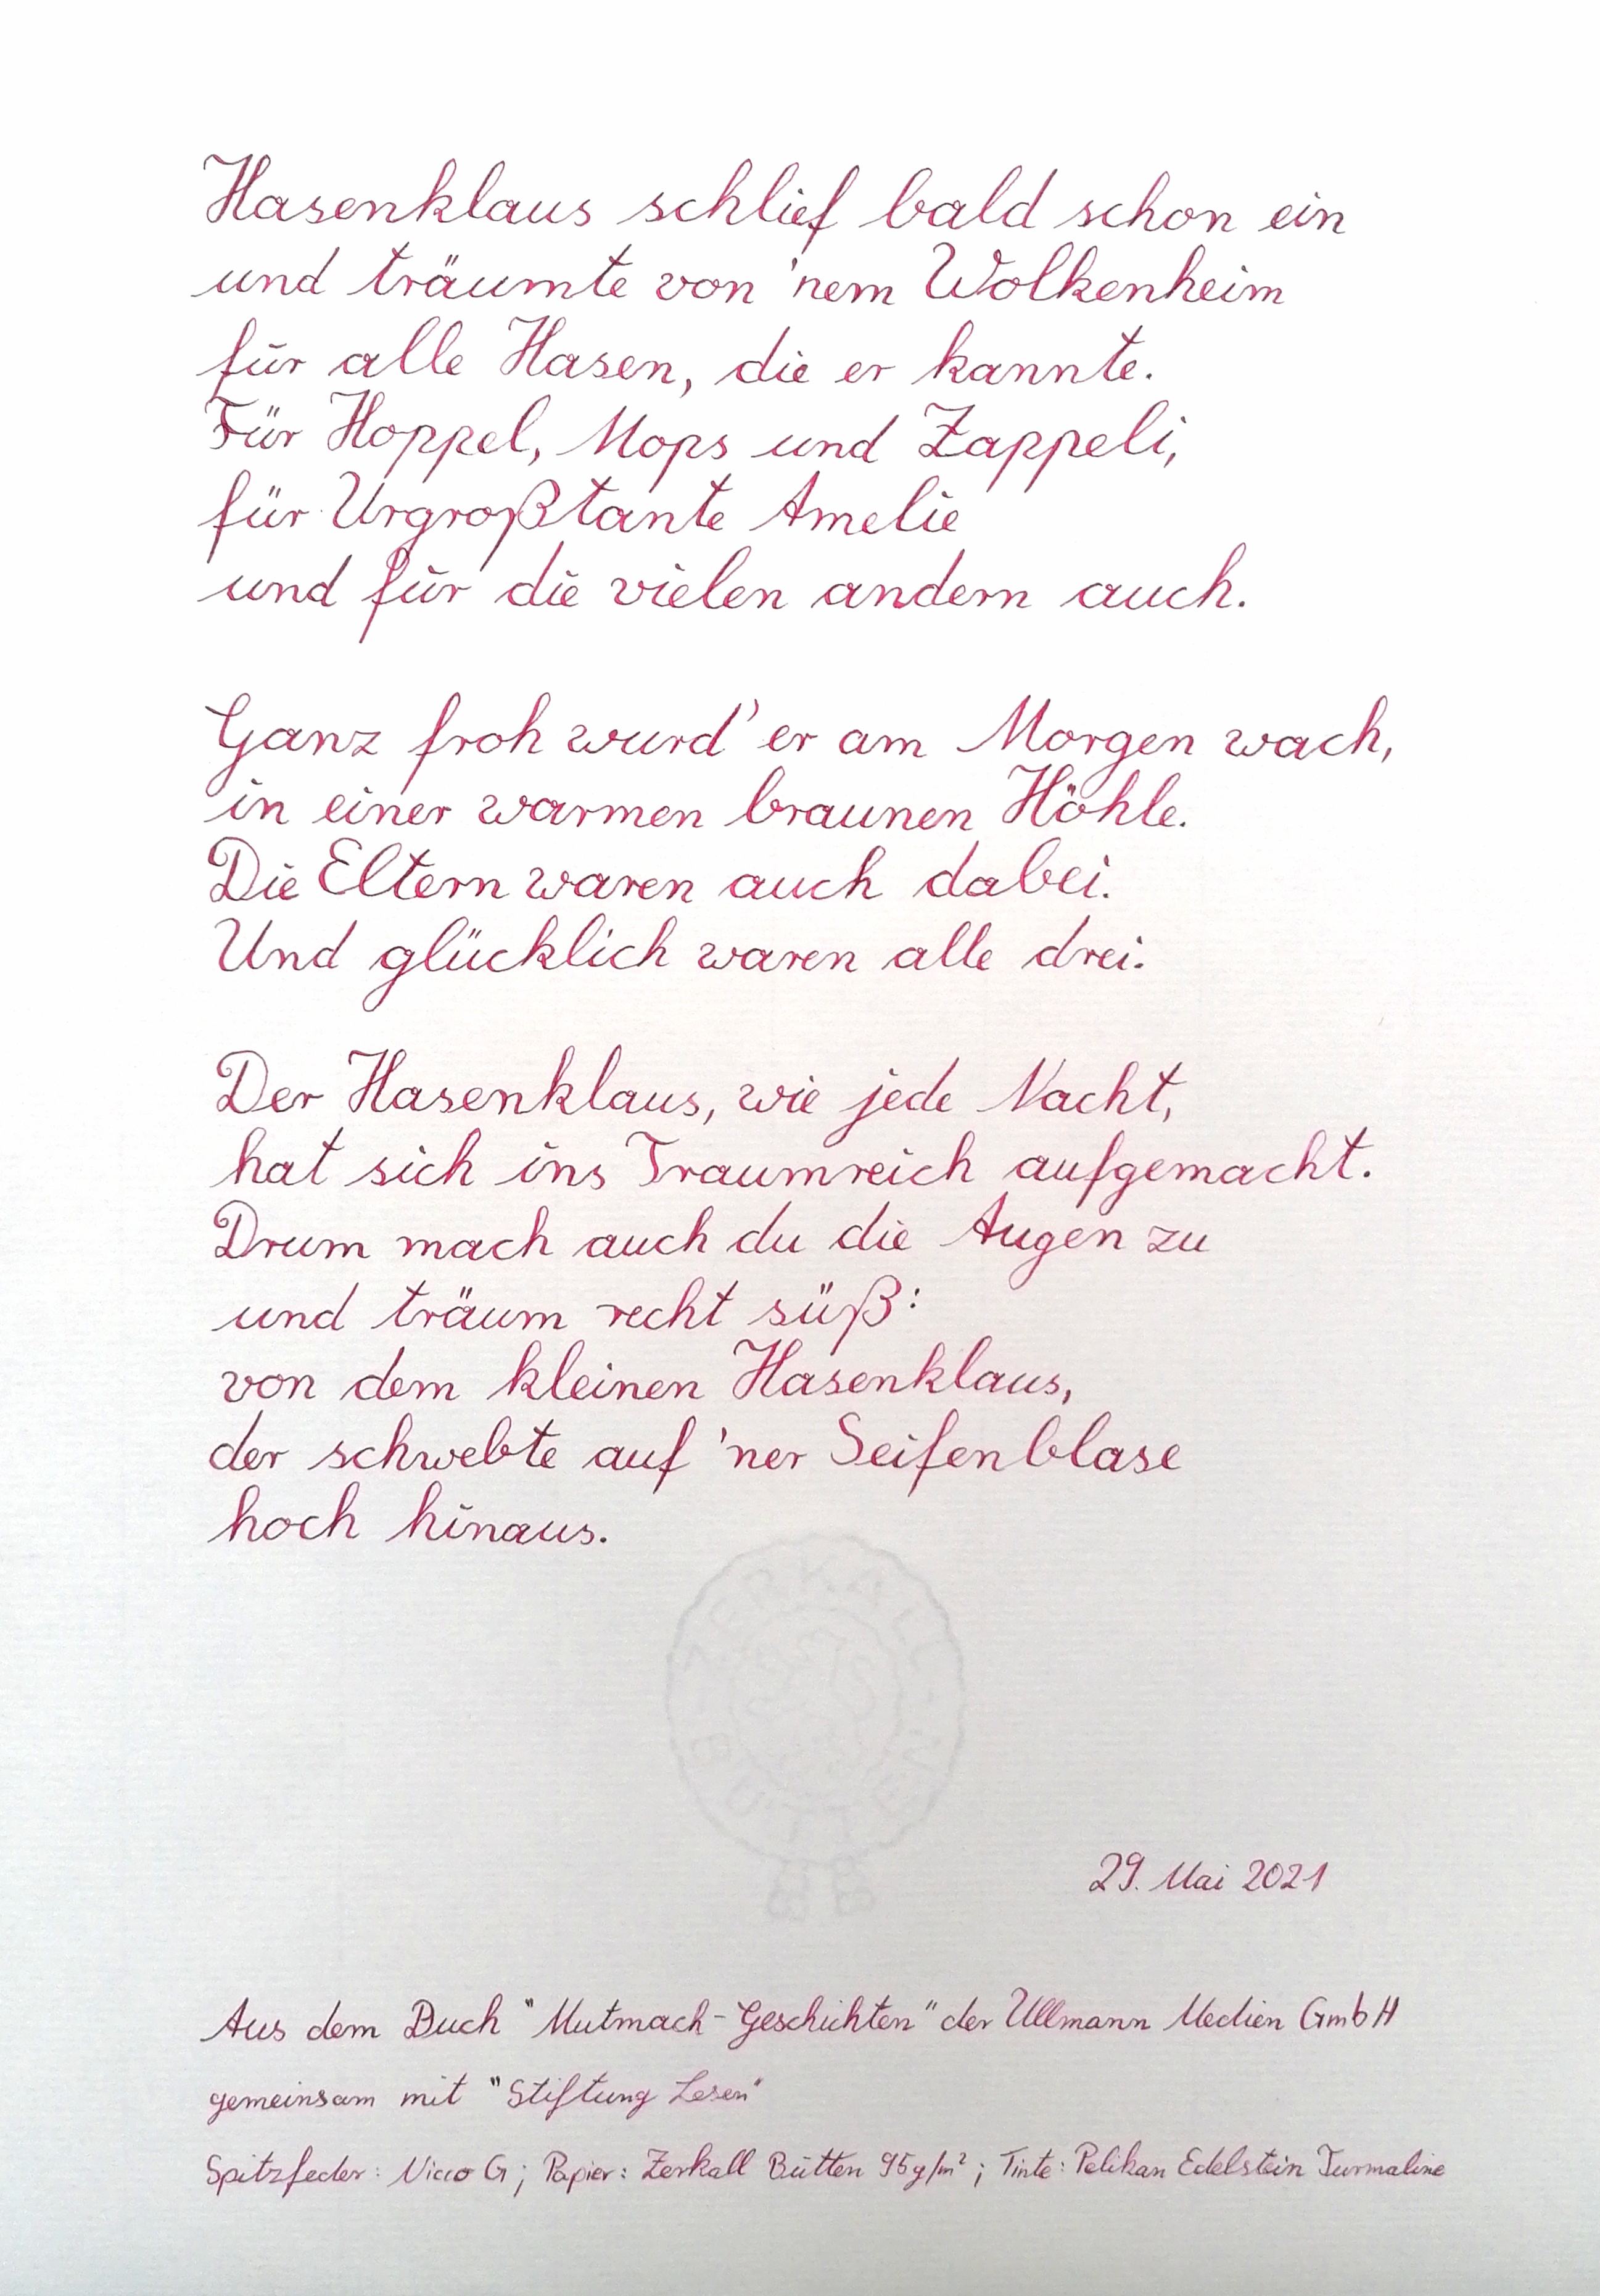 Hasenklaus schlief bald schon ein
und träumte von 'nem Wolkenheim
für alle Hasen, die er kannte.
Für Hoppel, Mops und Zappeli,
für Urgroßtante Amelie
und für die vielen andern auch.
Ganz froh wurd' er am Morgen wach,
in einer warmen braunen Höhle.
Die Eltern waren auch dabei.
Und glücklich waren alle drei.
Der Hasenklaus, wie jede Nacht,
hat sich ins Traumreich aufgemacht.
Drum mach auch du die Augen zu
und träum recht süß:
von dem kleinen Hasenklaus,
der schwebte auf 'ner Seifenblase
hoch hinaus.
ZERKALL
BÜTTEN
29. Mai 2021
Aus dem Buch "Mutmach-Geschichten" der Ullmann Medien GmbH
gemeinsam mit "Stiftung Lesen"
Spitzfeder: Nicco G; Papier: Zerkall Bütten 95g/m²; Tinte: Pelikan Edelstein Turmaline